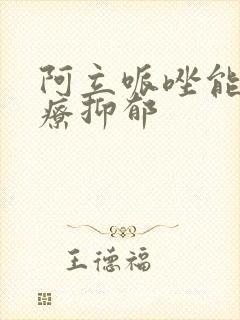 阿立哌唑能
疗抑郁
王德福